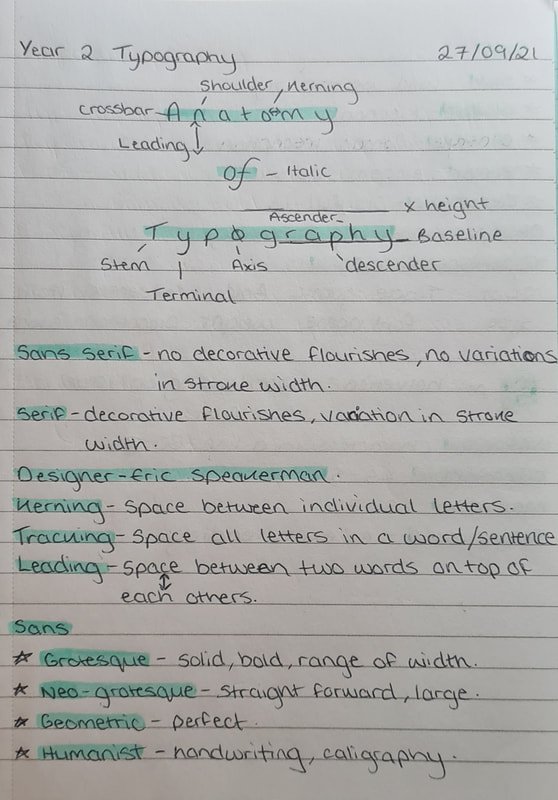 Year 2 Typography 27/09/21
shoulder, kerning
crossbar - Anatomy
Leading
Of - Italic
x height
Ascender
Typography Baseline
Stem Axis descender
Terminal
Sans Serif - no decorative flourishes, no variations
in stroke width.
Serif - decorative flourishes, variation in stroke
width.
Designer - Eric Speakerman.
Kerning - Space between individual letters.
Tracking - Space all letters in a word/sentence
Leading - Space between two words on top of
each others.
Sans
☆ Grotesque - solid, bold, range of width.
☆ Neo-grotesque - straight forward, large.
☆ Geometric - perfect.
☆ Humanist - handwriting, caligraphy.